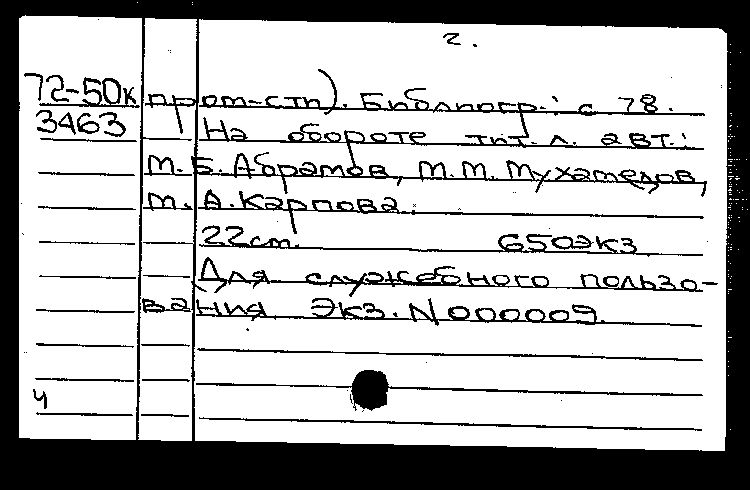 2.
72-50к пром-сти). Библиогр.: с 78.
3463 На обороте тит. л. авт.:
М. Б. Абрамов, М. М. Мухамедов,
М. А. Карпова.
22см. 650экз
Для служебного пользо-
вания Экз. N 000009.
Ч